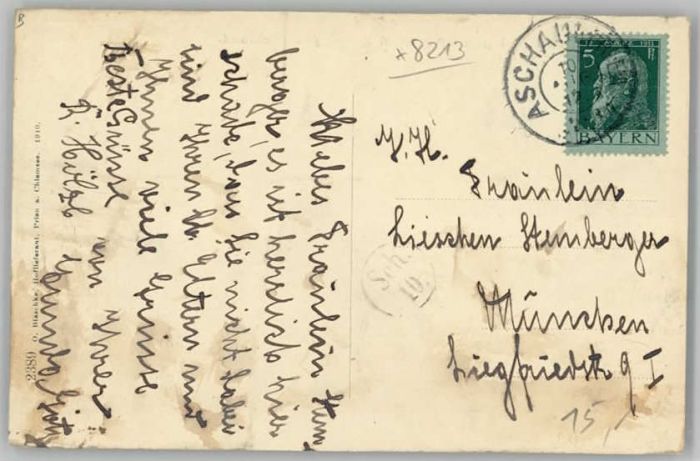 * 8213
ASCHAU
5
BAYERN
I. H.
Fräulein
Lieschen Stemberger
München
Siegfriedstr. 9 I
15,-
Liebes Fräulein Stem
berger, es ist herrlich hier
schade, dass Sie nicht dabei
sind Ihnen u. Eltern und
Ihnen viele Grüsse
Beste Grüsse von Ihrer
R. Hölzl
2389 O. Blaschke, Hoflieferant, Prien a. Chiemsee. 1910.
Sch
10.
B